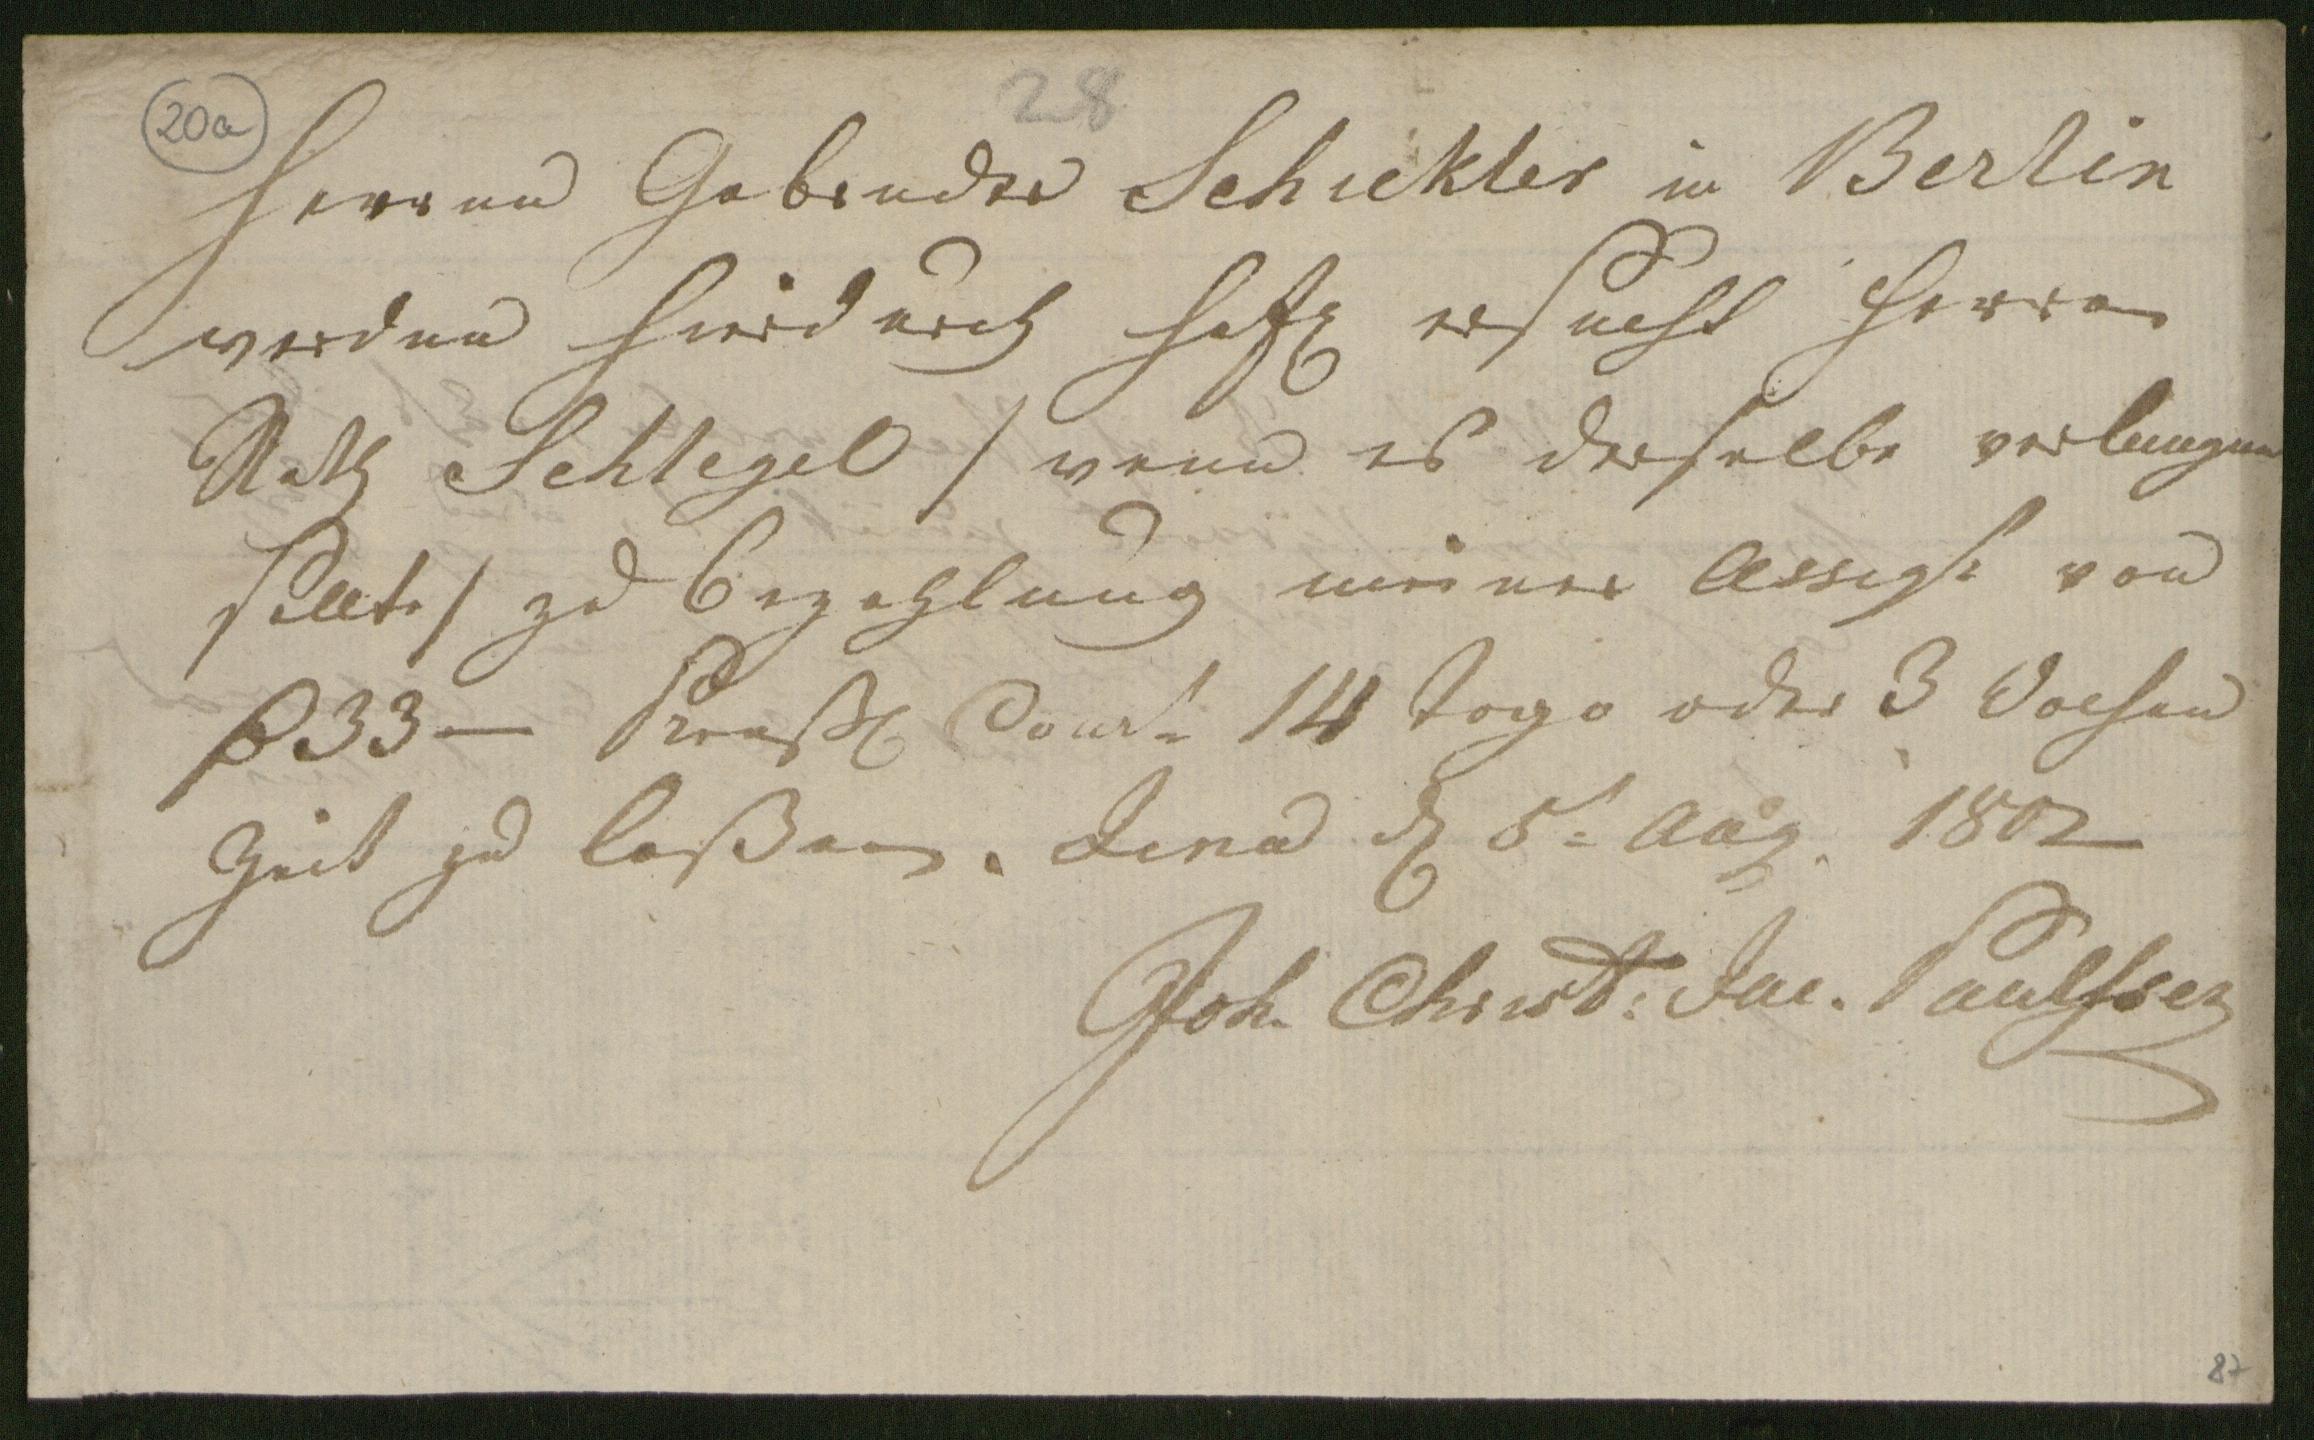 20a
28
Herren Gebruder Schickler in Berlin
werden hierdurch höfl ersucht Herrn
Rath Schlegel / wenn es derselbe verlangen
sollte / zu bezahlung meiner Assigt von
33 — Preußl Courr 14 tage oder 3 Wochen
Zeit zu laßen. Jena d 5t Aug. 1802
Joh. Christ: Jac. Paulssen
87